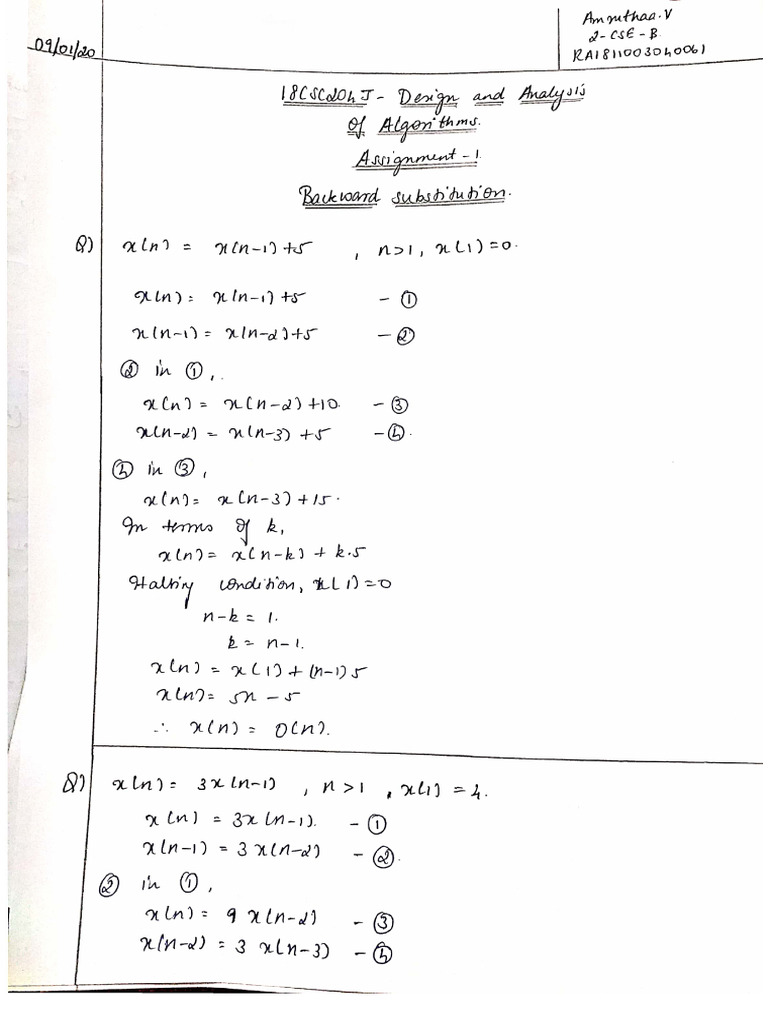 Amruthaa.V
2-CSE-B.
RA1811003040061
09/01/20
18CSC204J - Design and Analysis
of Algorithms.
Assignment-1.
Backward substitution.
Q) x(n) = x(n-1)+5 , n>1, x(1)=0.
x(n) = x(n-1)+5 - ①
x(n-1) = x(n-2)+5 - ②
② in ①,
x(n) = x(n-2)+10. - ③
x(n-2) = x(n-3)+5 - ④.
④ in ③,
x(n) = x(n-3)+15.
In terms of k,
x(n) = x(n-k) + k.5
Halting condition, x(1)=0
n-k = 1.
k = n-1.
x(n) = x(1) + (n-1)5
x(n) = 5n - 5
∴ x(n) = O(n).
Q) x(n) = 3x(n-1) , n>1 , x(1) = 4.
x(n) = 3x(n-1). - ①
x(n-1) = 3x(n-2) - ②.
② in ①,
x(n) = 9 x(n-2) - ③
x(n-2) = 3 x(n-3) - ④